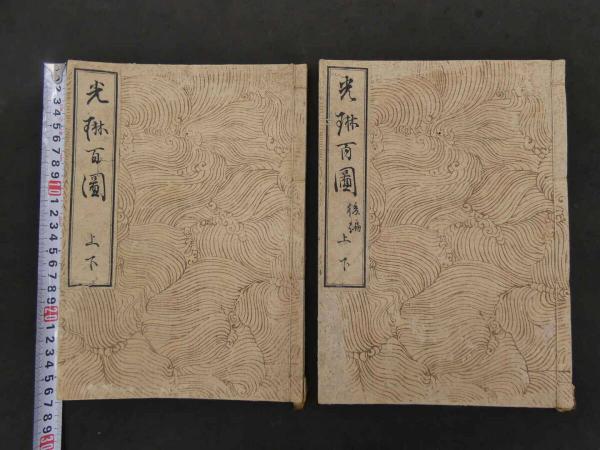 光琳百圖
上下
光琳百圖
後編
上下
1 2 3 4 5 6 7 8 9 10 1 2 3 4 5 6 7 8 9 20 1 2 3 4 5 6 7 8 9 30